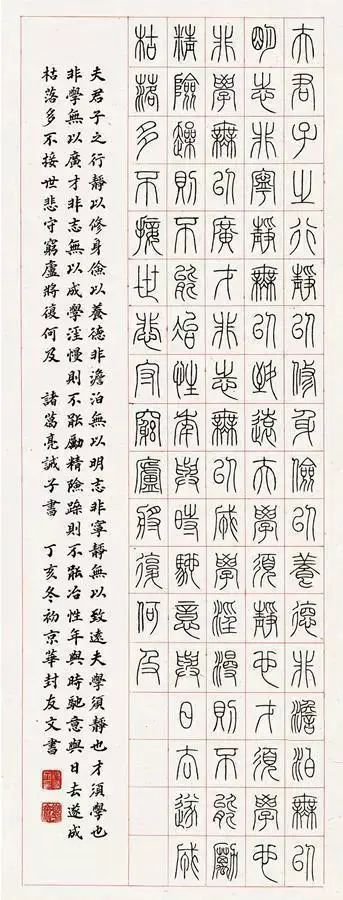 夫君子之行靜以修身儉以養德非澹泊無以
明志非寧靜無以致遠夫學須靜也才須學也
非學無以廣才非志無以成學淫漫則不能勵
精險躁則不能冶性年與時馳意與日去遂成
枯落多不接世悲守窮廬將復何及
夫君子之行靜以修身儉以養德非澹泊無以明志非寧靜無以致遠夫學須靜也才須學也
非學無以廣才非志無以成學淫慢則不能勵精險躁則不能冶性年與時馳意與日去遂成
枯落多不接世悲守窮廬將復何及 諸葛亮誡子書 丁亥冬初京華封友文書